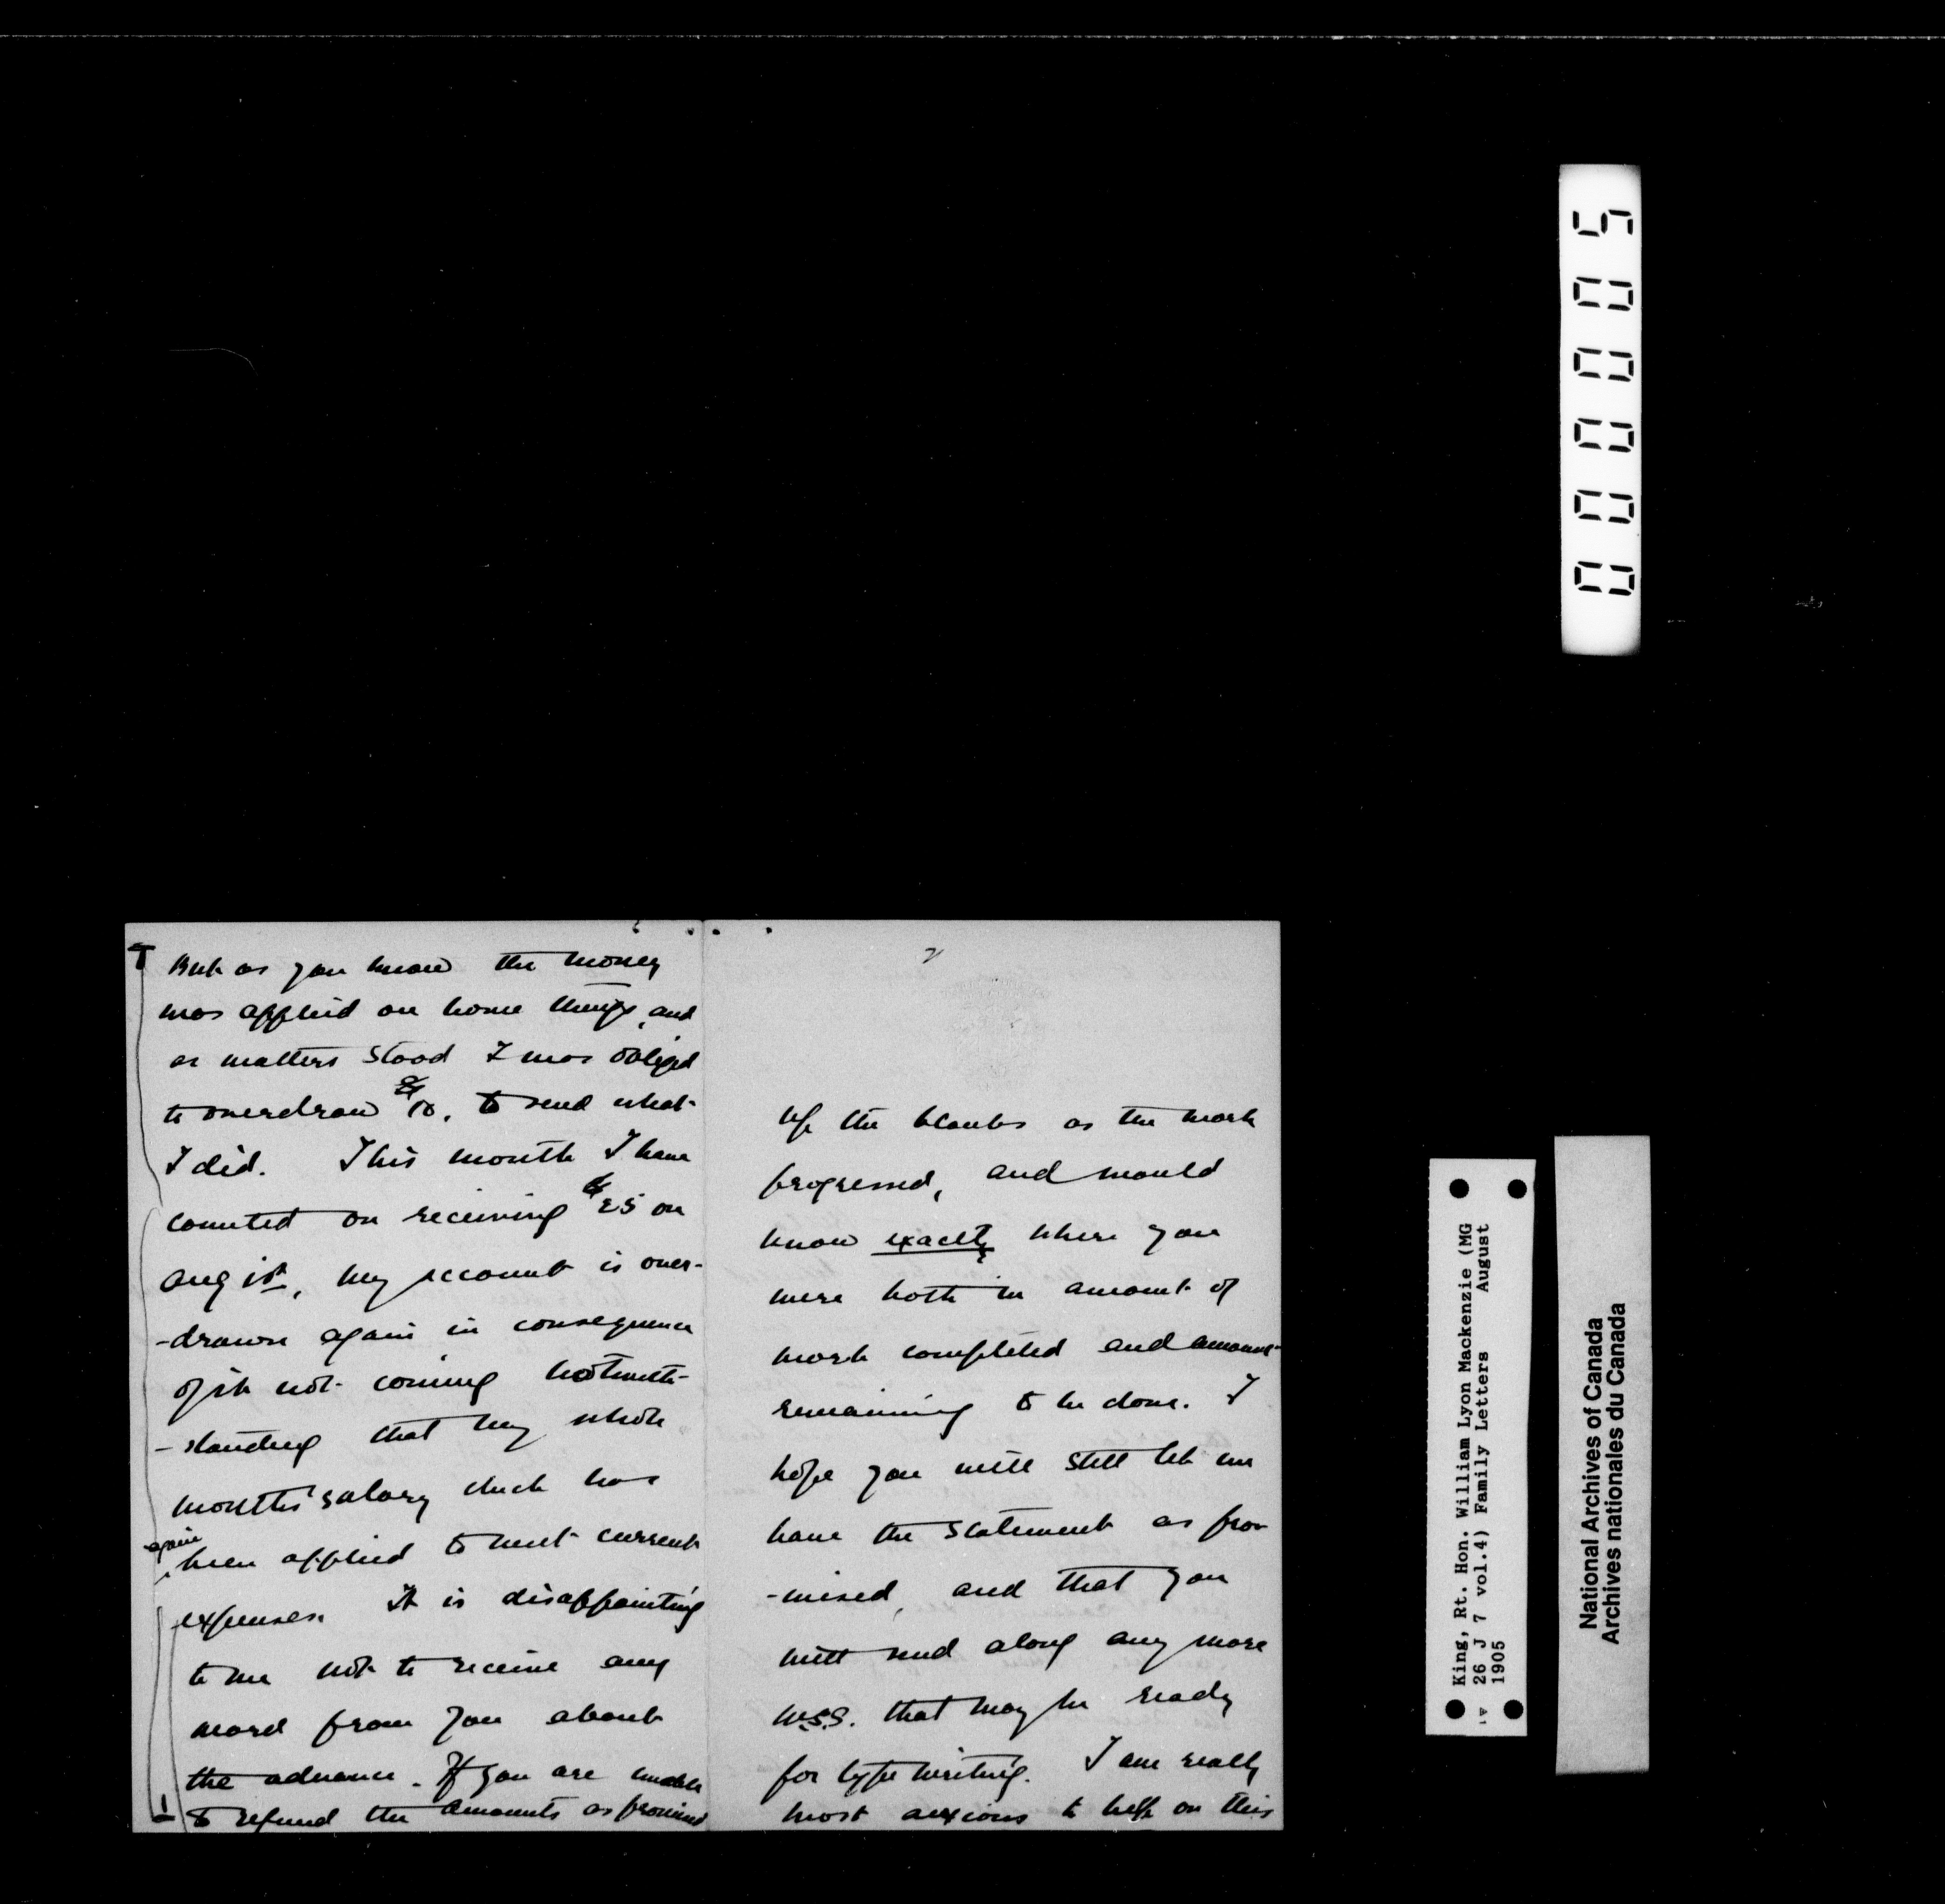 But as you know the money
was applied on home things, and
as matters stood I was obliged
to overdraw $10. to send what
I did. This month I have
counted on receiving $25 on
Aug 1st, my account is over-
-drawn again in consequence
of it not coming notwith-
-standing that my whole
months' salary cheque has
again
been applied to meet current
expenses. It is disappointing
to me not to receive any
word from you about
the advance. If you are unable
to refund the amounts as promised
2
up the blanks as the work
progressed, and would
know exactly where you
were both in amount of
work completed and amount
remaining to be done. I
hope you will still let me
have the statement as pro
-mised, and that you
will send along any more
m.s.s. that may be ready
for type writing. I am really
most anxious to help on this
000005
King, Rt. Hon. William Lyon Mackenzie (MG
26 J 7 vol.4) Family Letters August
1905
National Archives of Canada
Archives nationales du Canada